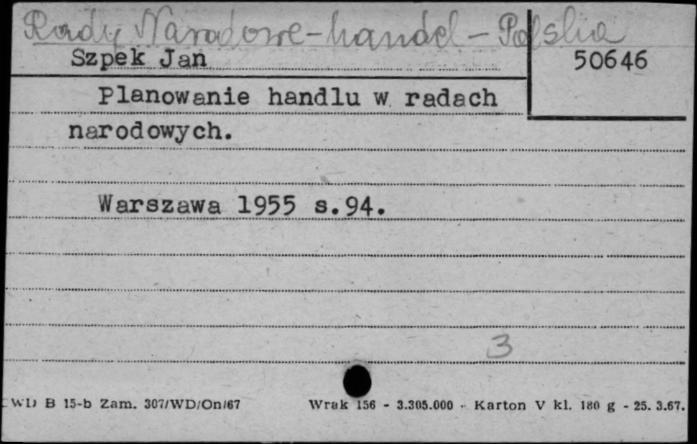 Rady Narodowe - handel - Polska
Szpek Jan
50646
Planowanie handlu w radach
narodowych.
Warszawa 1955 s.94.
3
CWD B 15-b Zam. 307/WD/On/67
Wrak 156 - 3.305.000 - Karton V kl. 180 g - 25. 3.67.